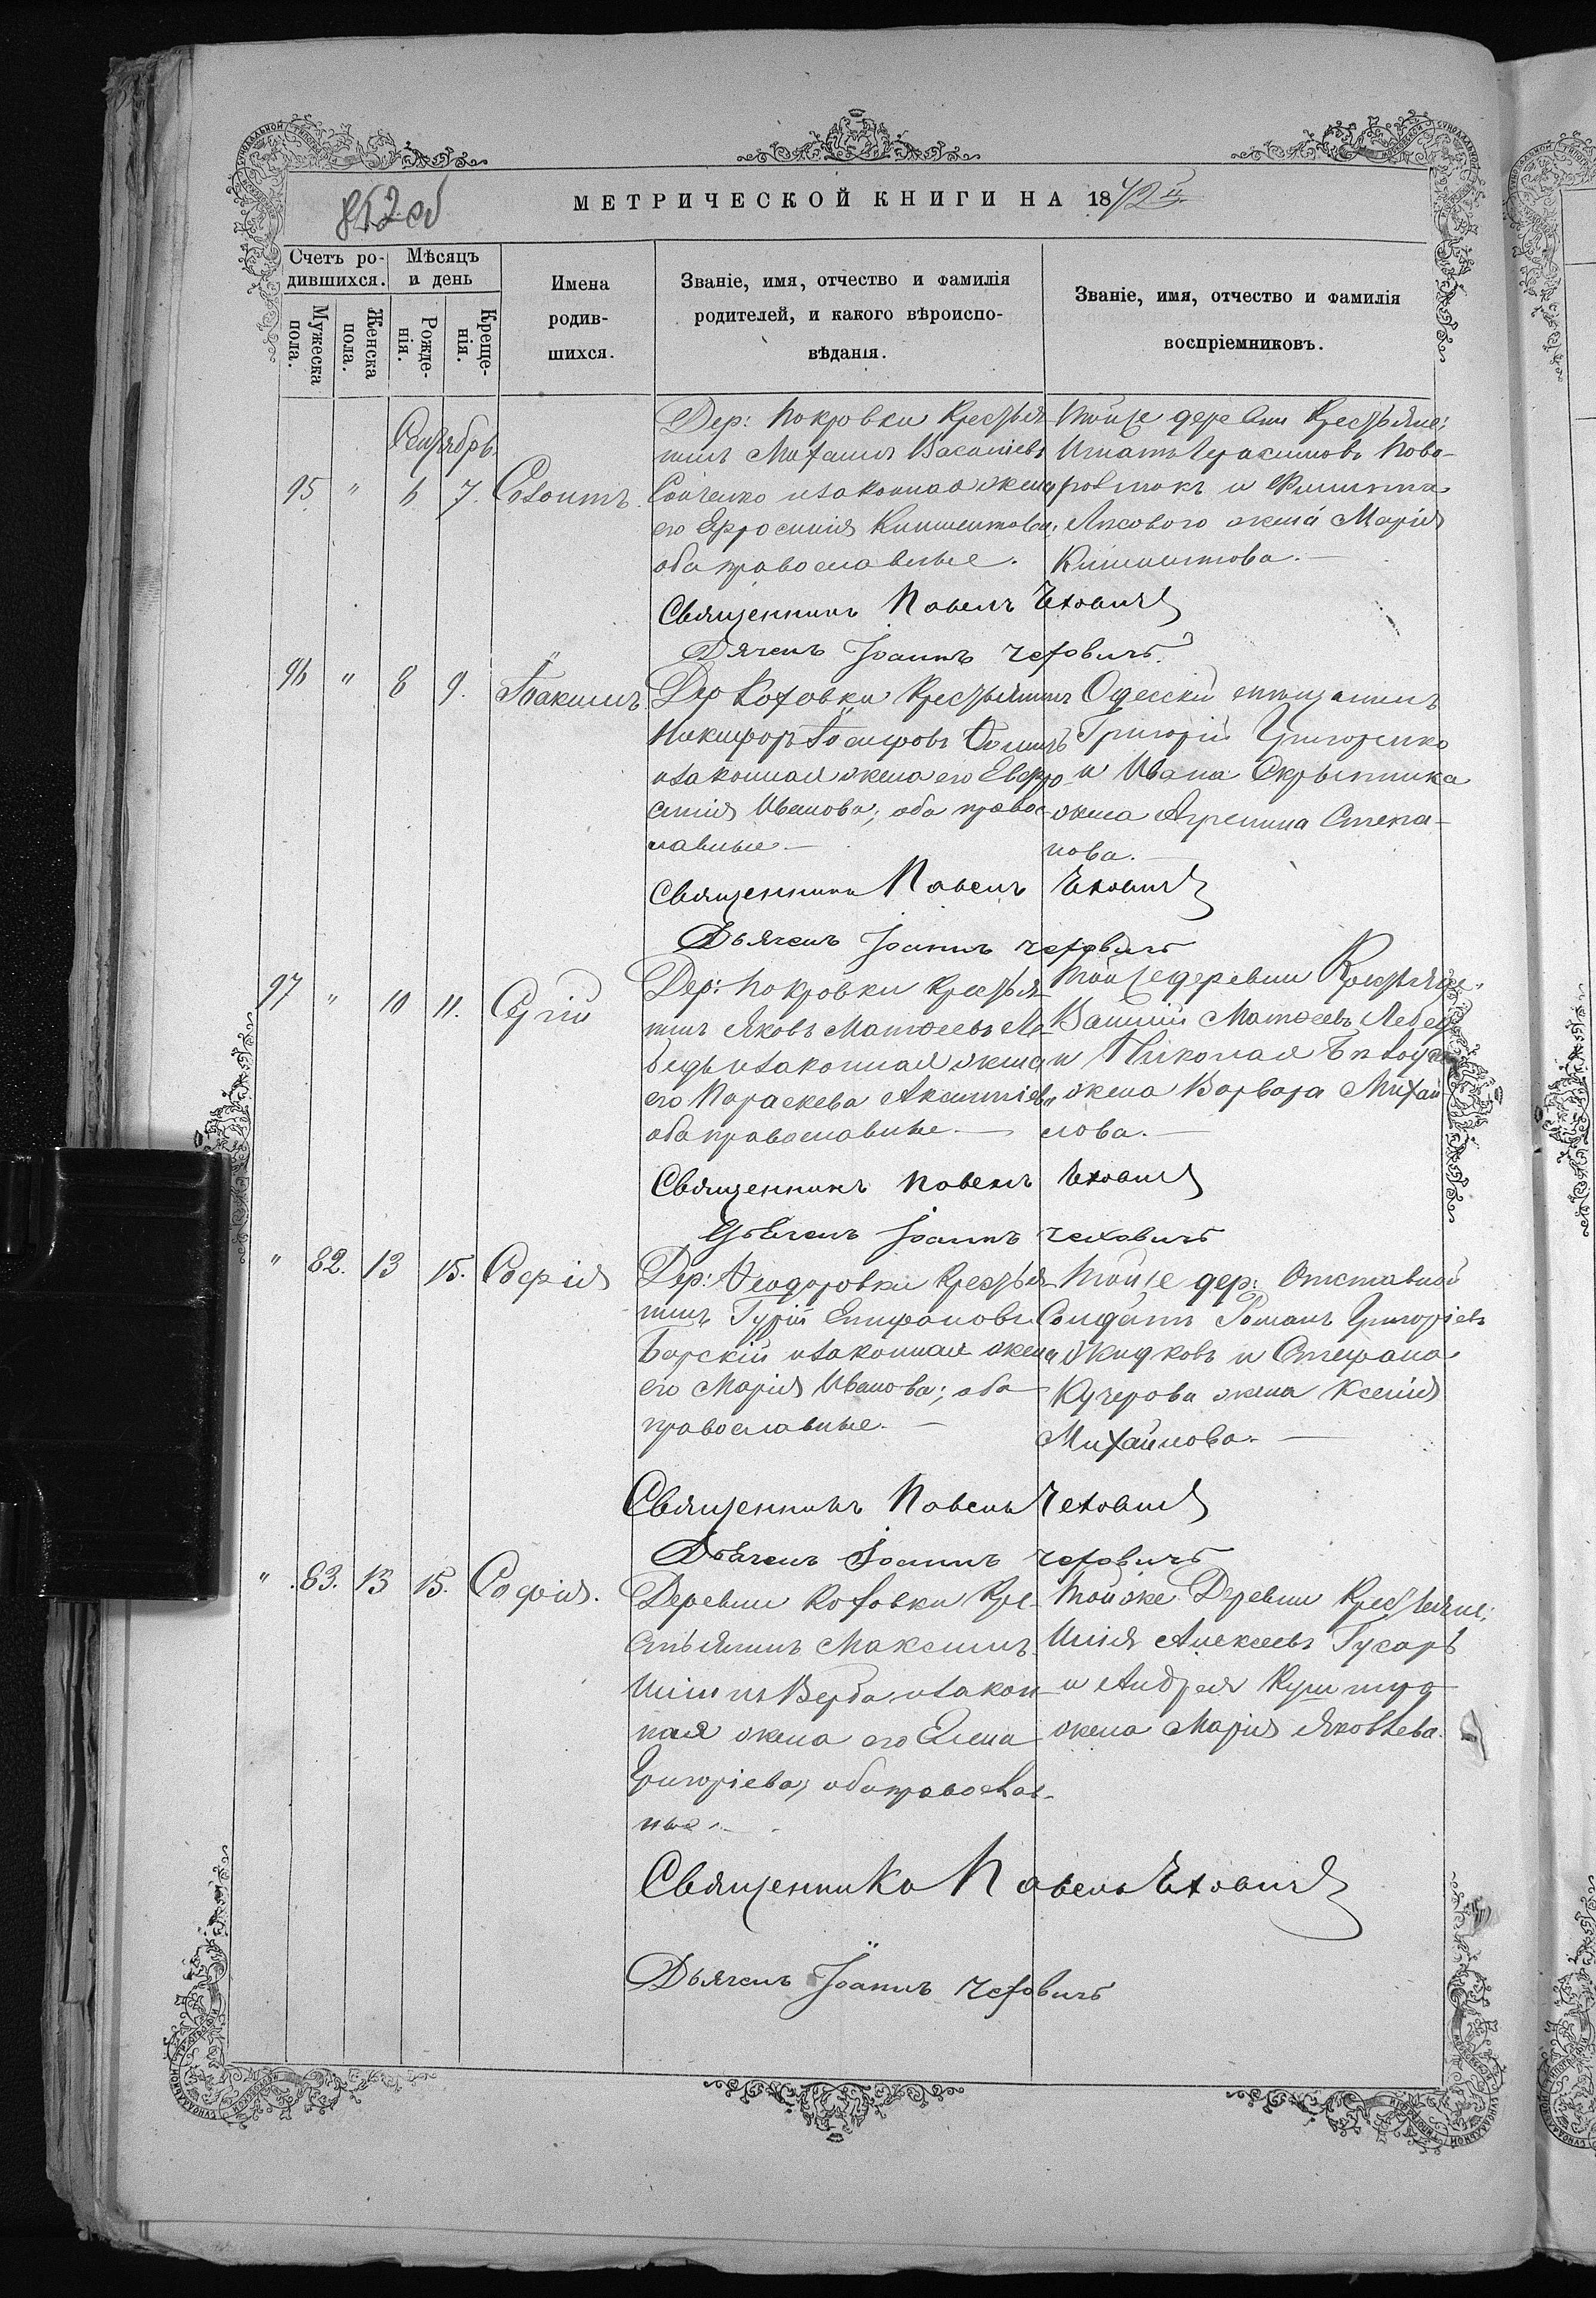 852 об
МЕТРИЧЕСКОЙ КНИГИ НА 1872й
Счетъ ро-
дившихся.
Мѣсяцъ
и день
Мужеска
пола.
Женска
пола.
Рожде-
нія.
Креще-
нія.
Имена
родив-
шихся.
Званіе, имя, отчество и фамилія
родителей, и какого вѣроиспо-
вѣданія.
Званіе, имя, отчество и фамилія
воспріемниковъ.
Сентябрь.
95 " 6 7. Созонтъ.
Дер: Покровки Крестья-
нинъ Михаилъ Василіевъ
и законная жена
его Ефросинія Климентова;
оба православные.
Тойже деревни Крестьяне;
Игнатъ Герасимовъ Ново-
и Филиппа
жена Марія
Климентова.
Священникъ Павелъ Чеховичъ
Дячекъ Іоаннъ Чеховичъ.
96 " 8 9. Іоакимъ
Дер Котовки Крестьянинъ
Никифоръ Іосифовъ
и законная жена его Евфро-
синія Иванова; оба правос-
лавные.
Одесскій мещанинъ
Григорій Григоренко
и Ивана Скрыпника
жена Агрепина Степа-
нова.
Священникъ Павелъ Чеховичъ
Дьячекъ Іоаннъ Чеховичъ
97 " 10 11. Сергій
Дер: Покровки Крестья-
нинъ Яковъ Матѳеевъ Ле-
бедь и законная жена
его Параскева
оба православные.
Тойже деревни Крестьяне;
Василій Матѳеевъ Лебедь
и Николая
жена Варвара Михай-
лова.
Священникъ Павелъ Чеховичъ
Дьячекъ Іоаннъ Чеховичъ
" 82. 13 15. Софія
Дер: Ѳеодоровки Крестья-
нинъ Гурій Епифановъ
Барскій и законная жена
его Марія Иванова; оба
православные.
Тойже дер: Отставной
Солдатъ Романъ Григоріевъ
Жидковъ и Стефана
Кучерова жена Ксенія
Михайлова.
Священникъ Павелъ Чеховичъ
Дьячекъ Іоаннъ Чеховичъ
" 83. 13 15. Софія.
Деревни Котовки Кре-
стьянинъ Максимъ
Ильинъ Верба, и закон-
ная жена его Елена
Григоріева; оба православ-
ные.
Тойже Деревни Крестьяне;
Илія Алексеевъ Гусаръ
и Андрея
жена Марія Яковлева.
Священникъ Павелъ Чеховичъ
Дьячекъ Іоаннъ Чеховичъ